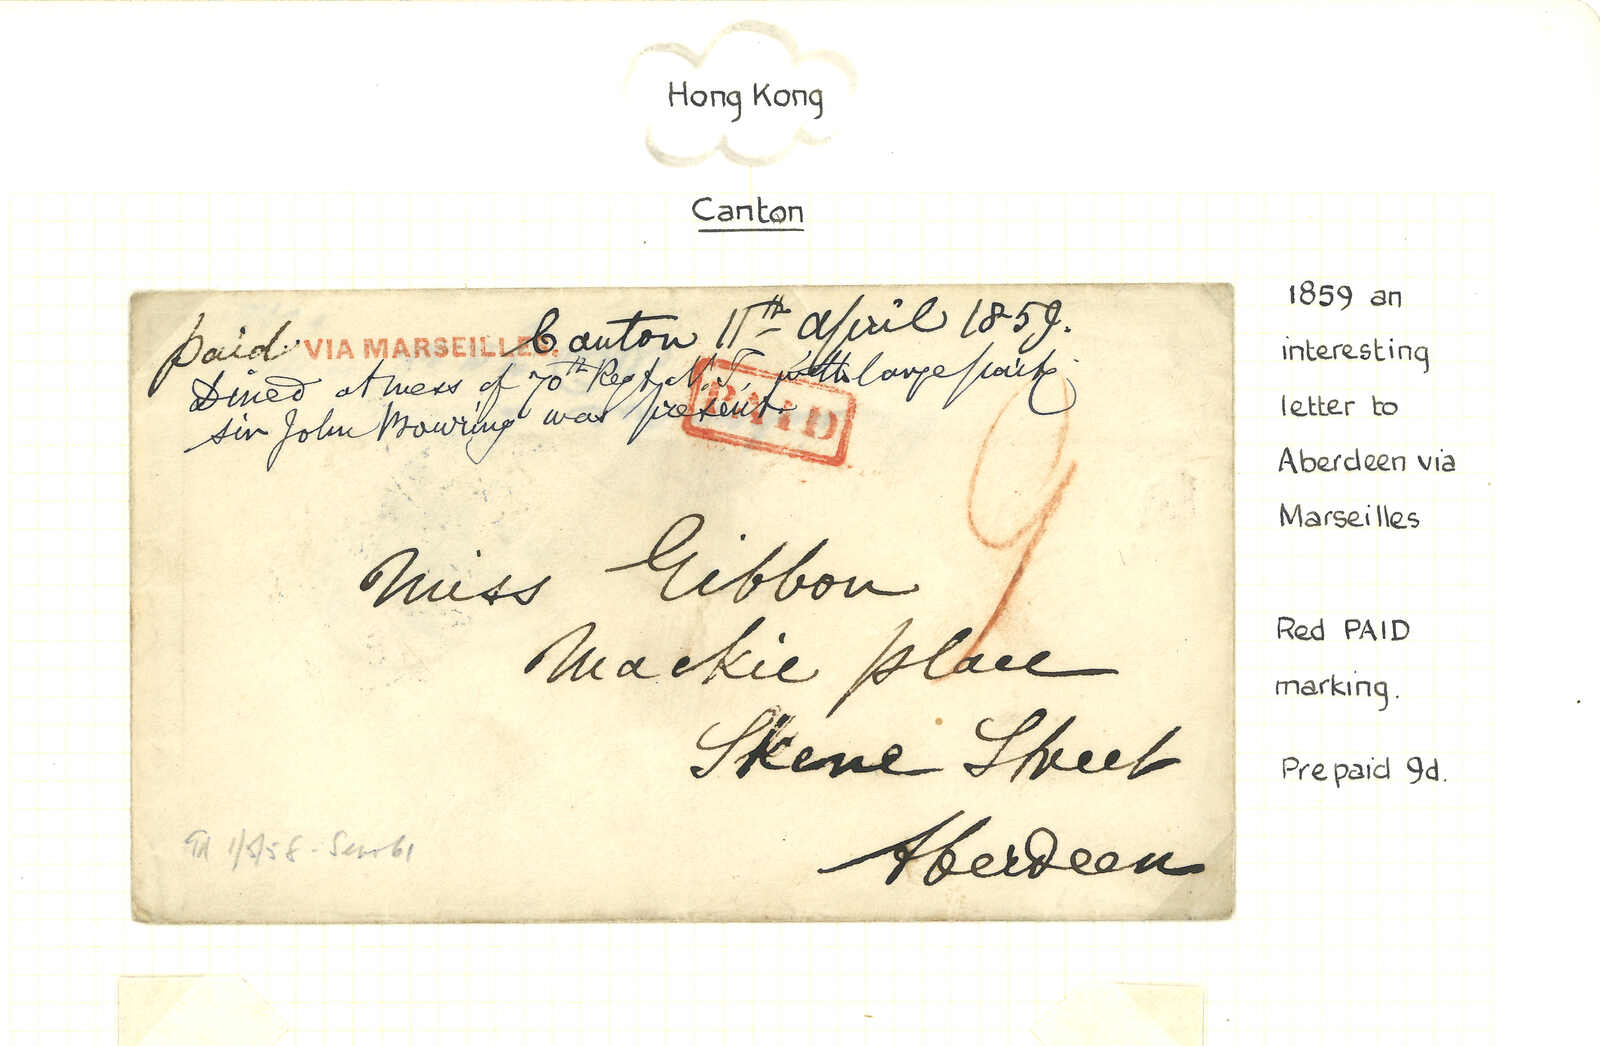 Hong Kong
Canton
paid VIA MARSEILLES. Canton 11th April 1859.
Dined at mess of 70th Regt N.I. with large party
sir John Bowring was present.
PAID
9
Miss Gibbon
Mackie place
Skene Street
Aberdeen
1/5/58 -
1859 an
interesting
letter to
Aberdeen via
Marseilles
Red PAID
marking.
Prepaid 9d.